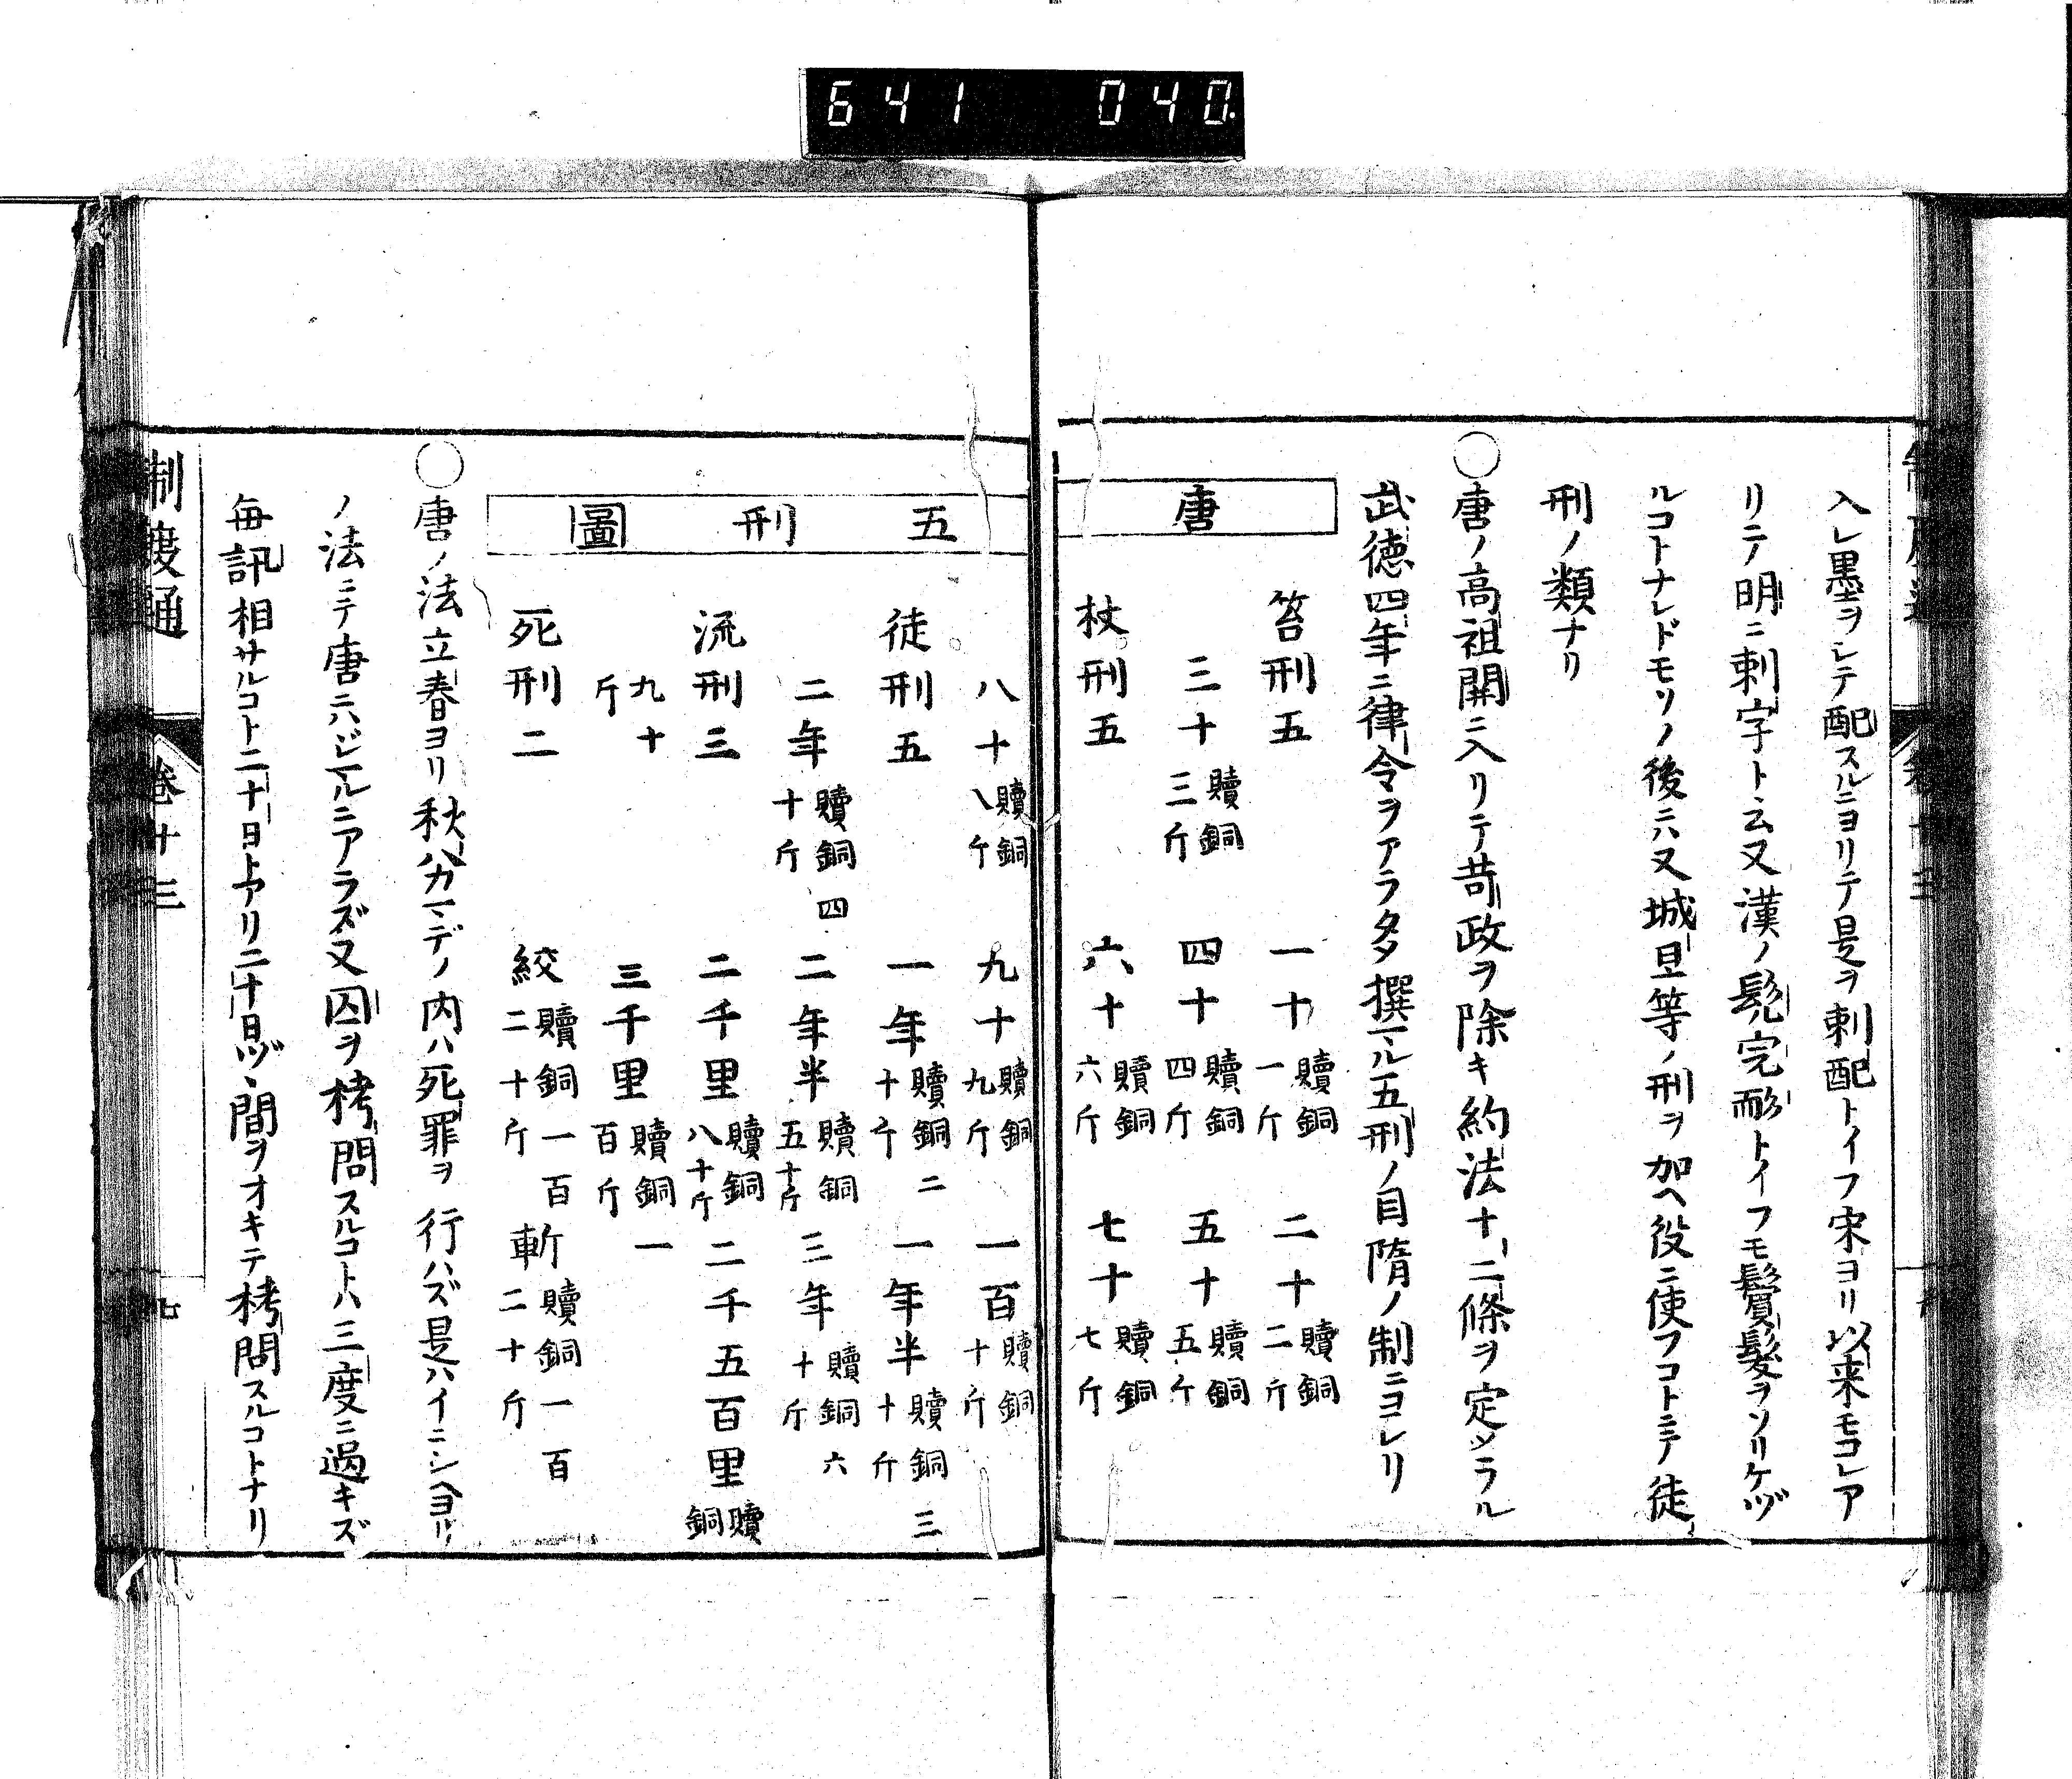 641 040.
入レ墨ヲシテ配スルニヨリテ是ヲ刺配トイフ宋ヨリ以来モコレア
リニテ明ニ刺字ト云又漢ノ髡完耐トイフモ鬢髮ヲソリケヅ
ルコトナレドモソノ後ニハ又城旦等ノ刑ヲ加ヘ役ニ使フコトニテ徒
刑ノ類ナリ
○唐ノ高祖開ニ入リテ苛政ヲ除キ約法十二條ヲ定メラル
武德四年ニ律令ヲアラタメ撰マル五刑ノ目隋ノ制ニヨレリ
唐
笞刑五 一十贖銅一斤 二十贖銅二斤
三十贖銅三斤 四十贖銅四斤 五十贖銅五斤
杖刑五 六十贖銅六斤 七十贖銅七斤
五刑圖
八十贖銅八斤 九十贖銅九斤 一百贖銅十斤
徒刑五 一年贖銅二十斤 一年半贖銅三十斤
二年贖銅四十斤 二年半贖銅五十斤 三年贖銅六十斤
流刑三 二千里贖銅八十斤 二千五百里贖銅
九十斤 三千里贖銅一百斤
死刑二 絞贖銅一百二十斤 斬贖銅一百二十斤
○唐ノ法立春ヨリ秋分マデノ内ハ死罪ヲ行ハズ是ハイニシヘヨリ
ノ法ニテ唐ニハジマルニアラズ又囚ヲ栲問スルコトハ三度ニ過キズ
每訊相サルコト二十日トアリ二十日ヅヽ間ヲオキテ栲問スルコトナリ
制度通 卷十三